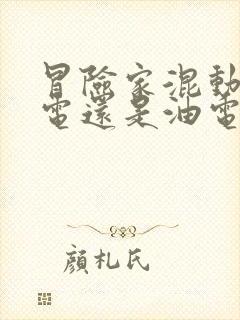 冒險家混動
電還是油電
顏札氏